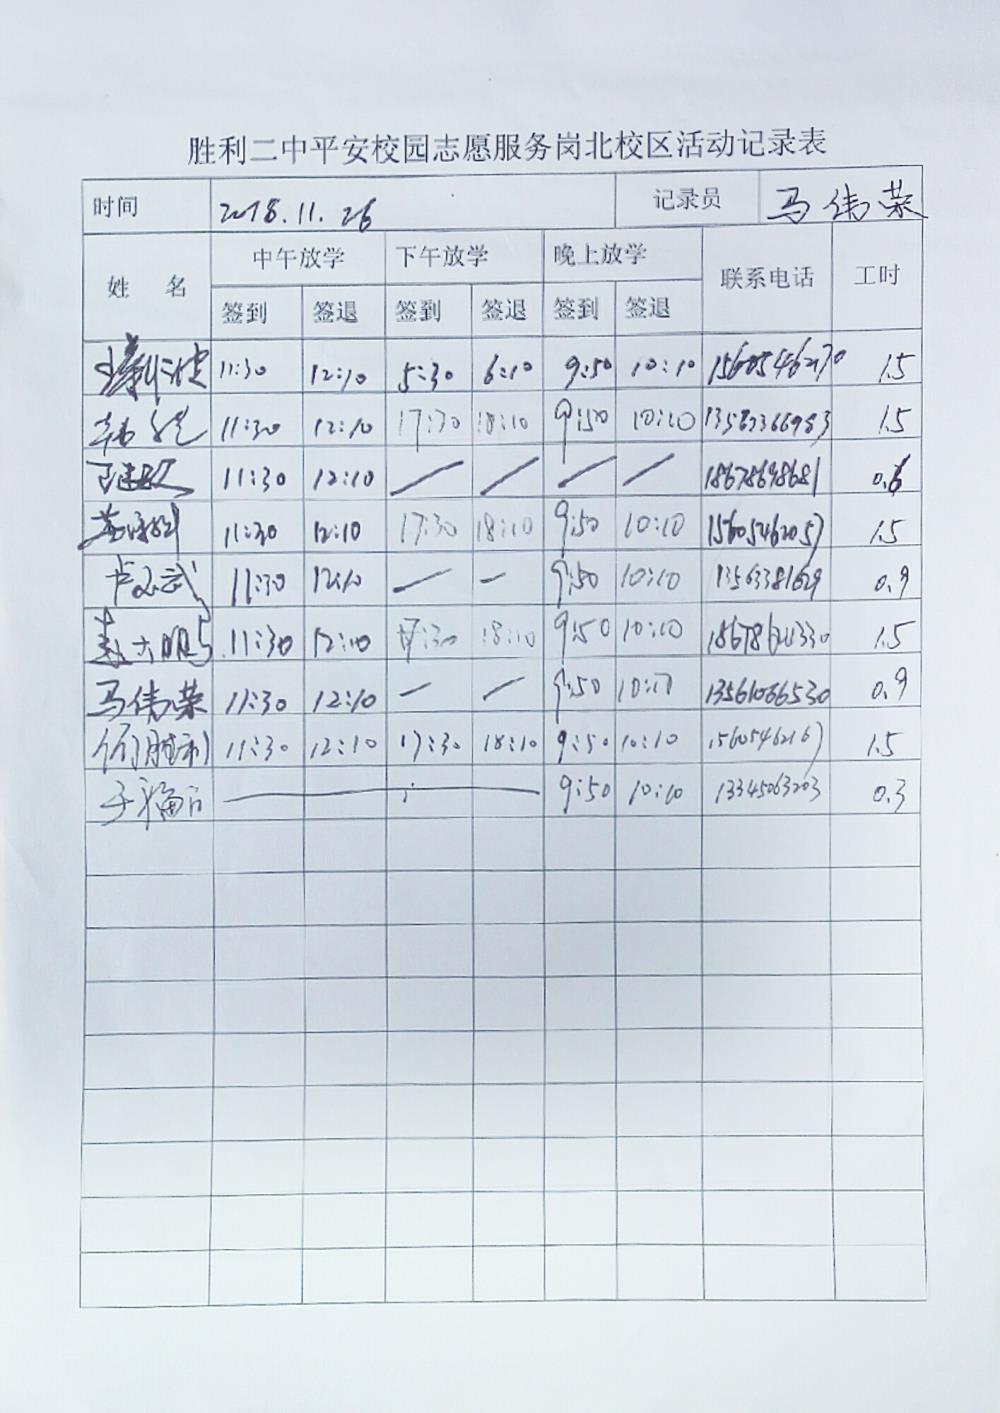 胜利二中平安校园志愿服务岗北校区活动记录表
时间 2018.11.26 记录员 马伟荣
姓 名 中午放学 下午放学 晚上放学 联系电话 工时
签到 签退 签到 签退 签到 签退
11:30 12:10 5:30 6:10 9:50 10:10 15605462170 1.5
11:30 12:10 17:30 18:10 9:50 10:10 1.5
11:30 12:10 / / / / 18678698681 0.6
11:30 12:10 17:30 18:10 9:50 10:10 15605462057 1.5
11:30 12:10 — — 9:50 10:10 13563381629 0.9
11:30 12:10 17:30 18:10 9:50 10:10 1.5
马伟荣 11:30 12:10 — / 9:50 10:10 13561066530 0.9
何胜利 11:30 12:10 17:30 18:10 9:50 10:10 15605462167 1.5
9:50 10:10 13345063203 0.3